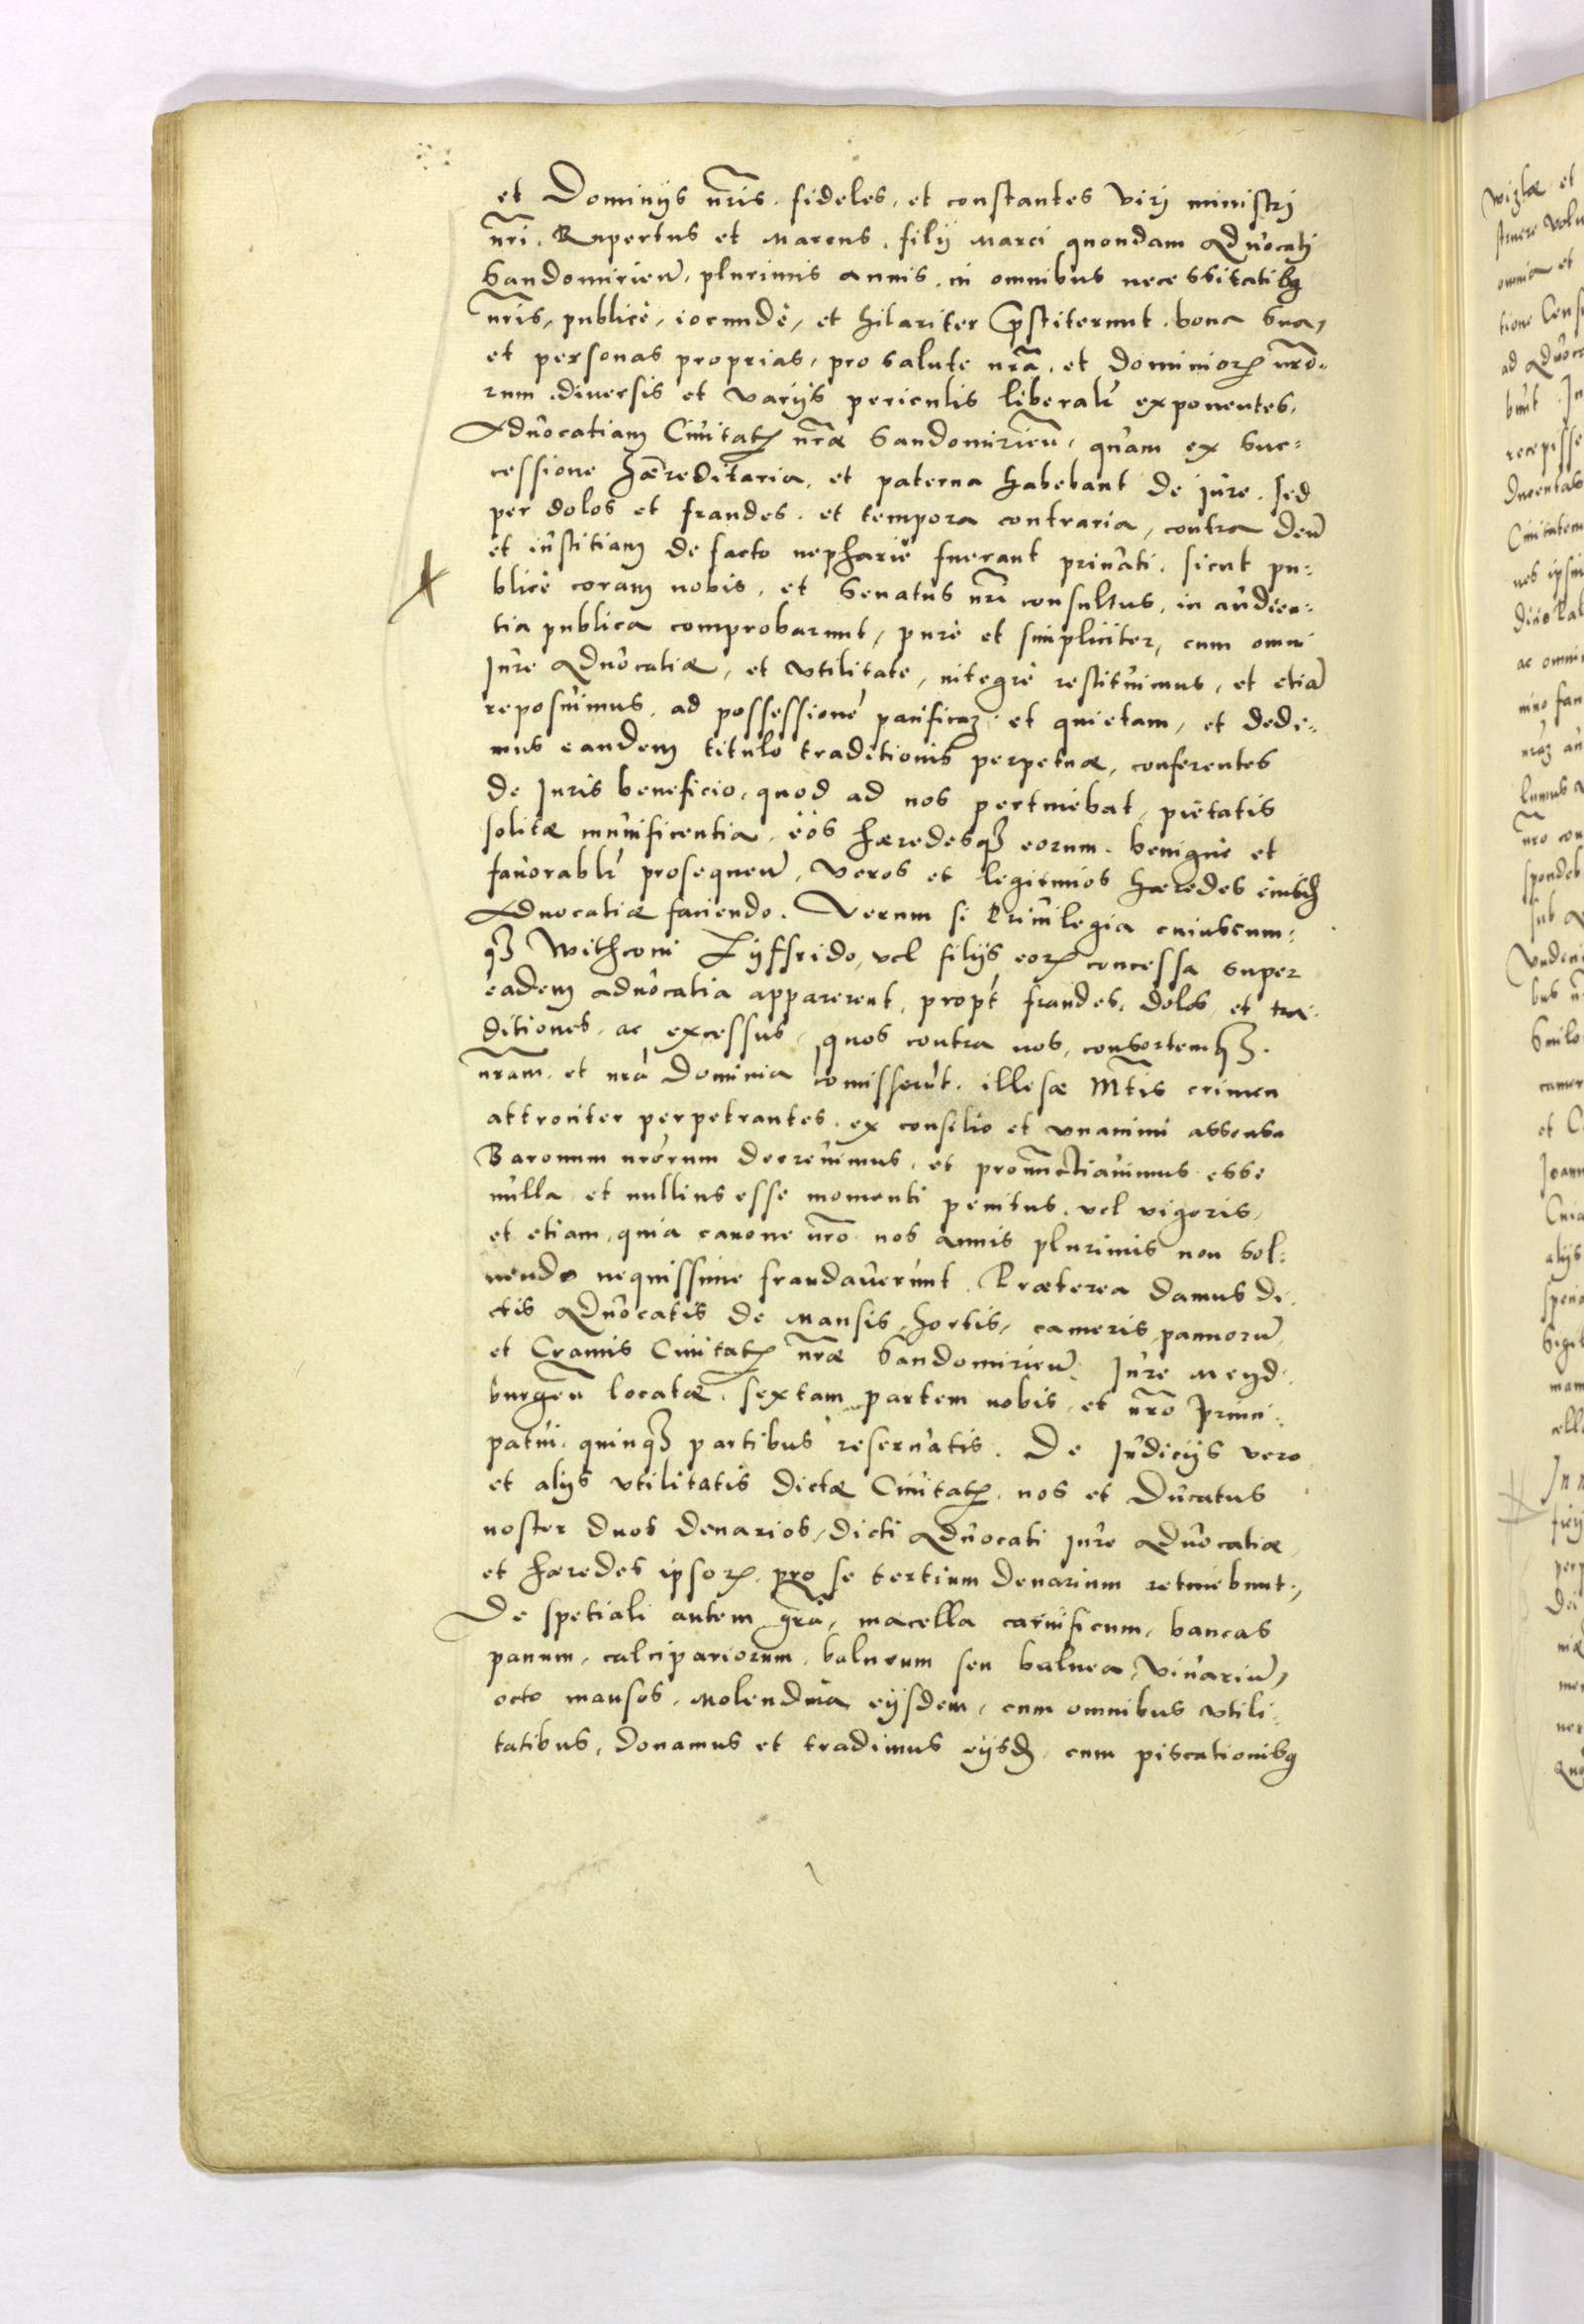 et Dominijs nr̃is. fideles, et constantes Virj ministrj
nr̃i. Rupertus et Marcus. filij Marci quondam Aduocatj
Sandomirieñ. plurimis annis. in omnibus necessitatibq
nr̃is, publicè, iocundè, et hilariter p̃stiterunt. bona sua,
et personas proprias, pro salute nr̃a. et dominioꝝ nr̃o-
rum. diuersis et varijs periculis liberalr̃ exponentes.
Aduocatiam Ciuitatꝭ nr̃æ Sandomirieñ. quam ex suc-
cessione hæreditaria, et paterna habebant de jure. sed
per dolos et fraudes. et tempora contraria, contra deũ
et iustitiam de facto nepharië fuerant priuati. sicut pu-
blicè coram nobis, et senatus nr̃i consultus, in audien-
tia publica comprobarunt, purè et simpliciter, cum omni
Jure Aduocatiæ, et vtilitate, integrè restituimus, et etiã
reposuimus. ad possessionẽ pacificaꝫ. et quietam, et dedi-
mus eandem titulo traditionis perpetuæ, conferentes
de Juris beneficio. quod ad nos pertinebat, pietatis
solitæ munificentia. ëos hæredesqꝫ eorum. benignè et
fauorablr̃ prosequeñ. Veros et legitimos hæredes eiusd̃
Aduocatiæ faciendo. Verum si Priuilegia cuiuscum-
qꝫ Withconi Lyffrido, vel filijs eoꝝ concessa super
eadem aduocatia apparerent. propt̃ fraudes. dolos et tra-
ditiones. ac excessus. quos contra nos, consortemqꝫ.
nr̃am. et nr̃a Dominia cõmisserũt. illesæ Mt̃is crimen
attrociter perpetrantes. ex consilio et vnanimi assensu
Baronum nr̃orum decreuimus, et pronunctiauimus esse
nulla et nullius esse momenti penitus. vel vigoris,
et etiam, quia canone nr̃o nos annis plurimis non sol-
uendo nequissime fraudauerunt. Præterea damus di-
ctis Aduocatis de Mansis. hortis, cameris pannorũ,
et Cramis Ciuitatꝭ nr̃æ Sandomirieñ. Jure Meyd-
burgeñ locatæ. sextam partem nobis, et nr̃o Princi-
patui. quinqꝫ partibus reseruatis. De Judicijs vero
et alijs vtilitatis dictæ Ciuitatꝭ. nos et Ducatus
noster duos denarios, dicti Aduocati jure Aduocatiæ
et hæredes ipsoꝝ. pro se tertium denarium retinebunt.,
De spetiali autem gr̃a, macella carnificum, bancas
panum, calcipariorum. balneum seu balnea, Viuariũ,
octo mansos. Molendina eijsdem, cum omnibus vtili-
tatibus, donamus et tradimus eijsd̃. cum piscationibq